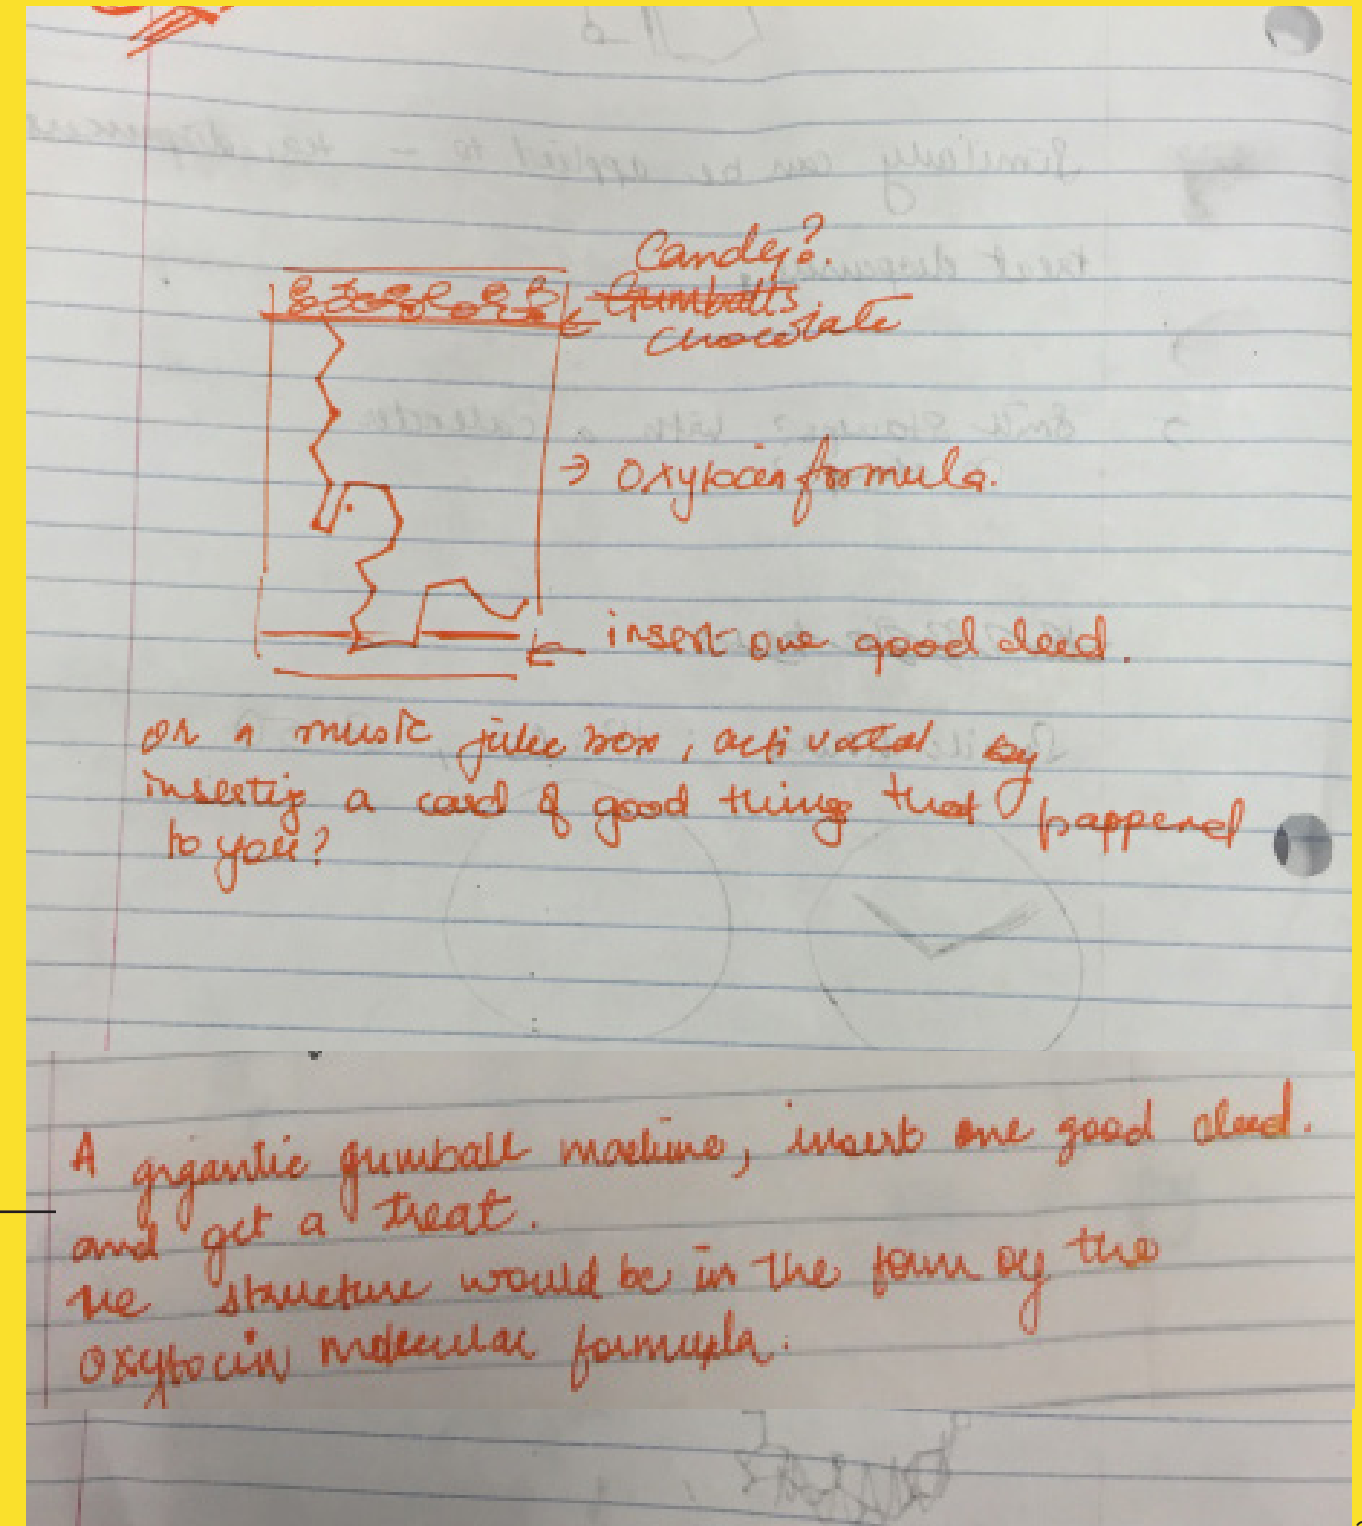 Candy?
Gumballs.
chocolate
→ Oxytocin formula.
← insert one good deed.
or a music juke box, activated by
inserting a card of good things that happened
to you?
A gigantic gumball machine, insert one good deed.
and get a treat.
The structure would be in the form of the
oxytocin molecular formula.